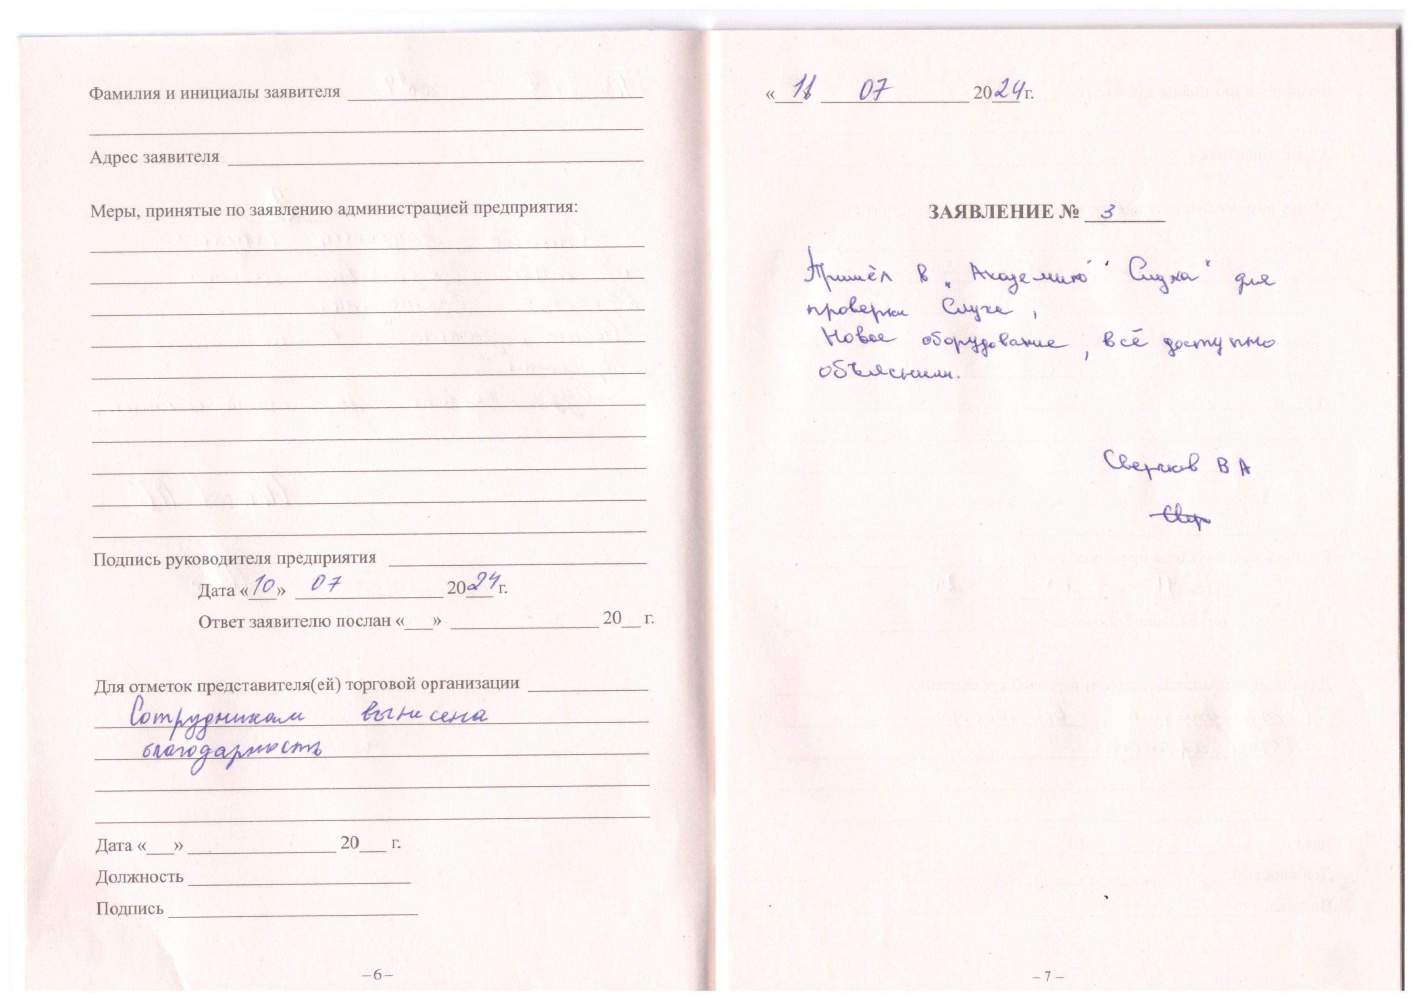 Фамилия и инициалы заявителя
Адрес заявителя
Меры, принятые по заявлению администрацией предприятия:
Подпись руководителя предприятия
Дата «10» 07 2024 г.
Ответ заявителю послан «___» ________ 20__ г.
Для отметок представителя(ей) торговой организации
Сотрудникам вынесена
благодарность
Дата «___» ________ 20___ г.
Должность
Подпись
– 6 –
«11 07 2024 г.
ЗАЯВЛЕНИЕ № 3
Пришёл в „Академию Слуха" для
проверки Слуха,
Новое оборудование, всё доступно
объяснили.
Сверчков В А
– 7 –